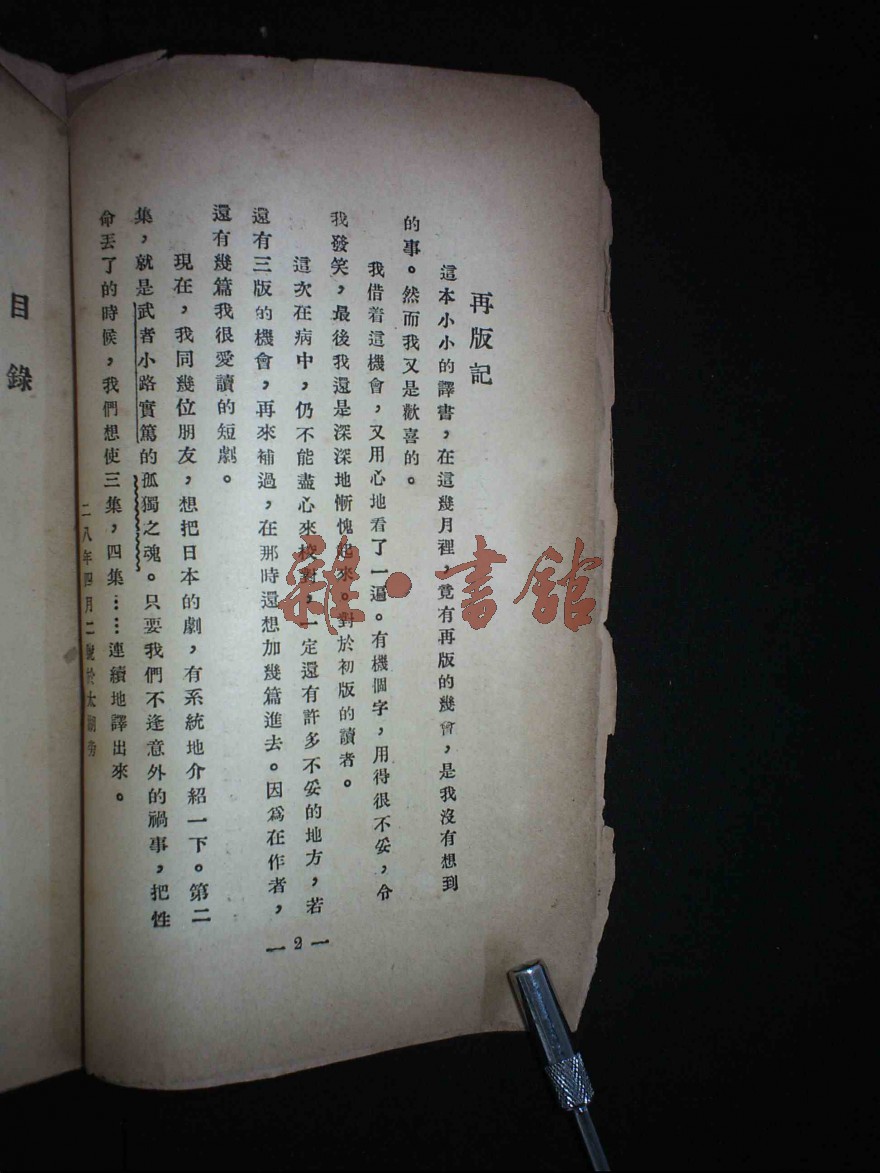 再版記
這本小小的譯書，在這幾月裡，竟有再版的幾會，是我沒有想到
的事。然而我又是歡喜的。
我借着這機會，又用心地看了一遍。有機個字，用得很不妥，令
我發笑，最後我還是深深地慚愧起來。對於初版的讀者。
這次在病中，仍不能盡心來校對，一定還有許多不妥的地方，若
還有三版的機會，再來補過，在那時還想加幾篇進去。因爲在作者，
還有幾篇我很愛讀的短劇。
現在，我同幾位朋友，想把日本的劇，有系統地介紹一下。第二
集，就是武者小路實篤的孤獨之魂。只要我們不逢意外的禍事，把性
命丟了的時候，我們想使三集，四集……連續地譯出來。
二八年四月二號於太湖旁
— 2 —
目錄
雜·書館